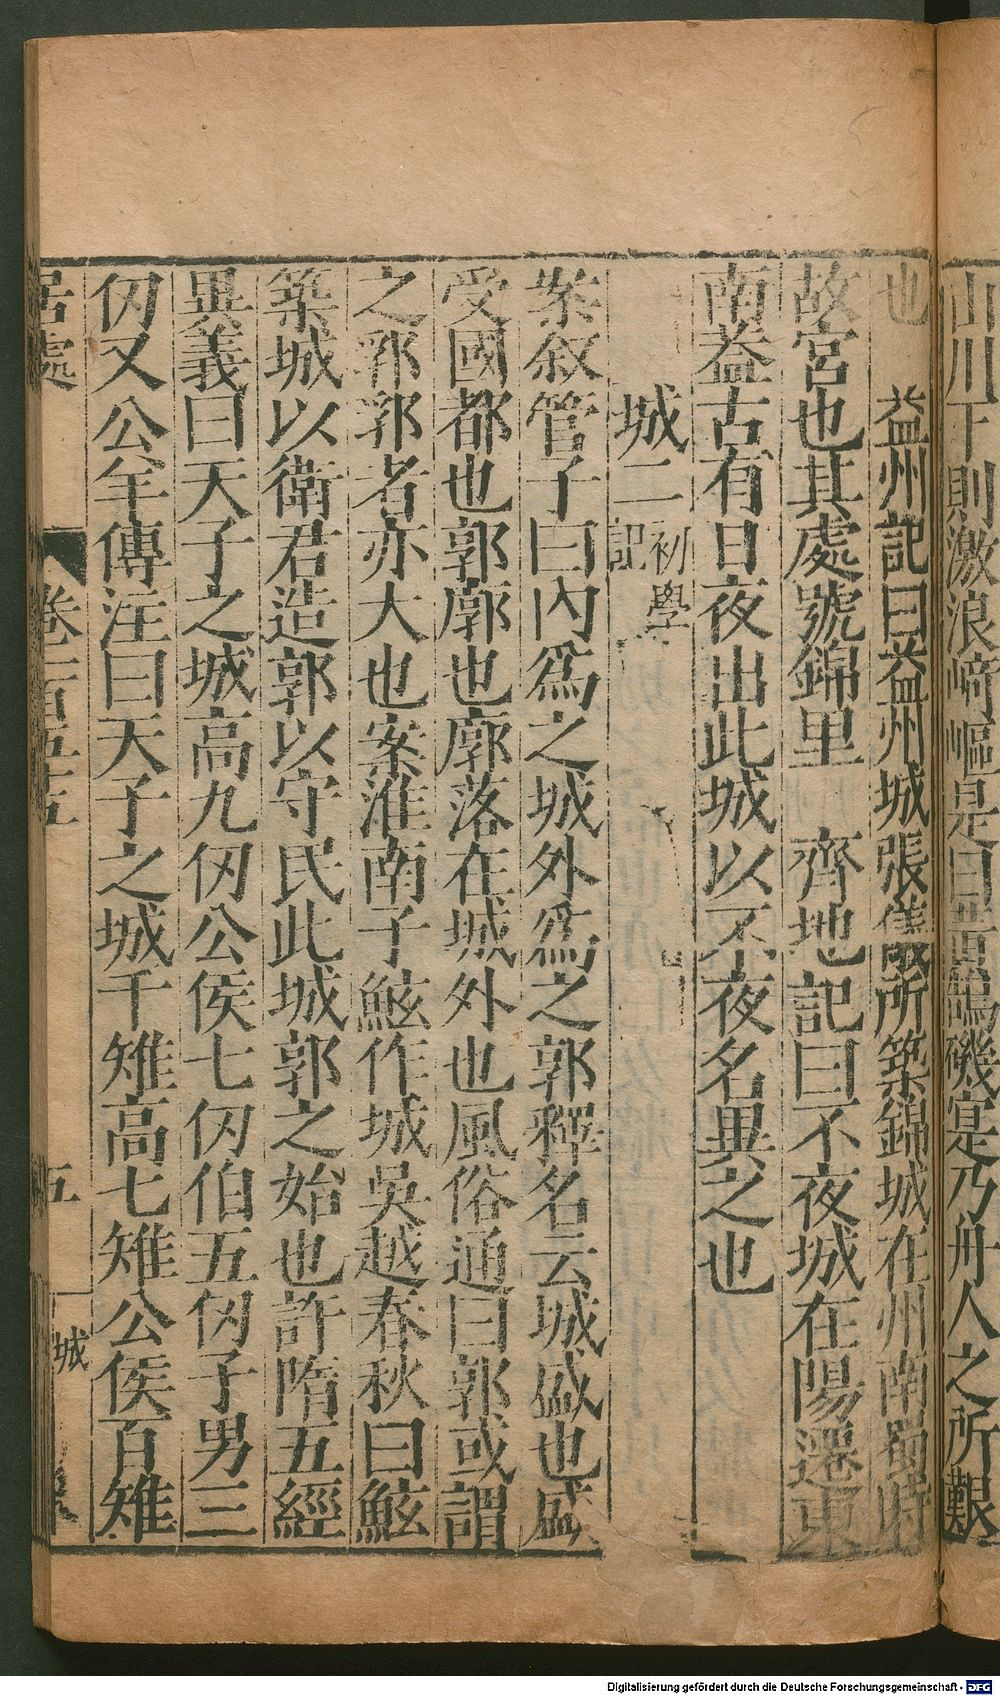 山川下則激浪崎嶇是曰黃鵠磯寔乃舟人之所艱
也　益州記曰益州城張儀所築錦城在州南蜀時
故宮也其處號錦里　齊地記曰不夜城在陽遷東
南蓋古有日夜出此城以不夜名異之也
城二 初學記
䇿叙管子曰內爲之城外爲之郭釋名云城盛也盛
受國都也郭廓也廓落在城外也風俗通曰郭或謂
之郛郛者亦大也案淮南子鮌作城吳越春秋曰鮌
築城以衛君造郭以守民此城郭之始也許隋五經
異義曰天子之城高九仞公侯七仞伯五仞子男三
仞又公羊傳注曰天子之城千雉高七雉公侯百雉
居處 卷一百五五 五 城
Digitalisierung gefördert durch die Deutsche Forschungsgemeinschaft - DFG